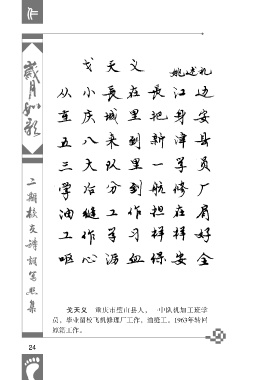 岁月如歌
二期校友诗词笔墨集
戈天义
姚述礼
从小长在长江边
重庆城里把身安
五八来到新津县
三大队里一学员
学冶分到航修厂
油缝工作担在肩
工作学习样样好
呕心沥血保安全
戈天义 重庆市璧山县人。一中队机加工班学
员。毕业留校飞机修理厂工作，油缝工。1963年转回
原籍工作。
24